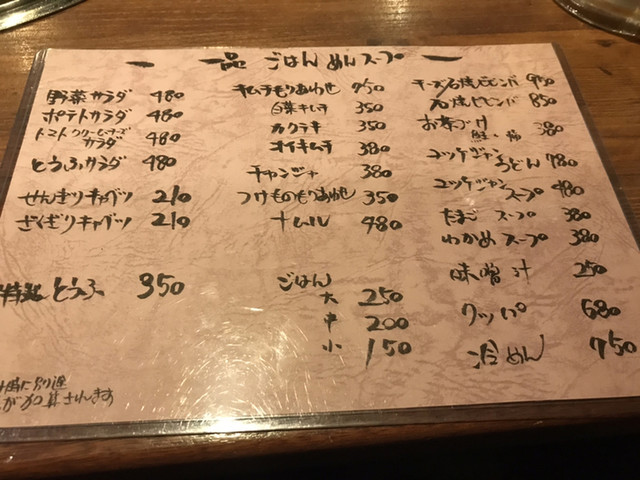 一 一品 ごはん めん スープ 一
野菜サラダ 480
ポテトサラダ 480
トマトクリームチーズサラダ 480
とうふサラダ 480
せんぎりキャベツ 210
ざくぎりキャベツ 210
特製とうふ 350
キムチもりあわせ 750
白菜キムチ 350
カクテキ 350
オイキムチ 380
チャンジャ 380
つけものもりあわせ 350
ナムル 480
ごはん
大 250
中 200
小 150
チーズ石焼ビビンバ 950
石焼ビビンバ 850
お茶づけ
鮭・梅 380
ユッケジャンうどん 780
ユッケジャンスープ 480
たまごスープ 380
わかめスープ 380
味噌汁 250
クッパ 680
冷めん 750
に別途
が加算されます